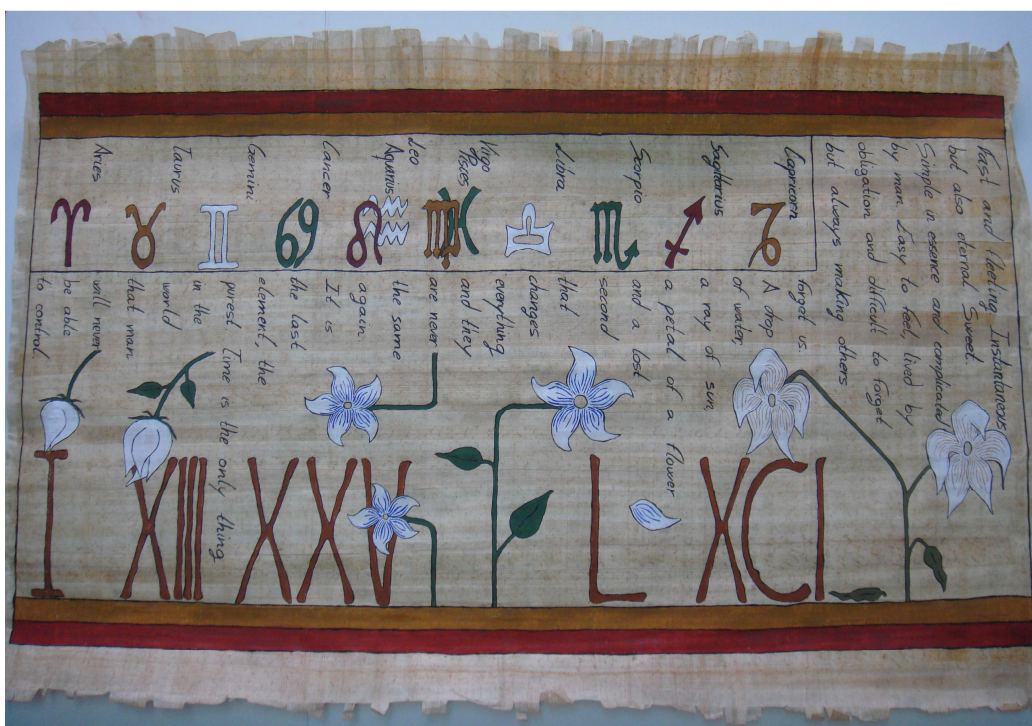 Fast and fleeting Instantaneous
but also eternal Sweet.
Simple in esence and complicated
by man. Easy to feel, lived by
obligation and difficult to forget
but always making others
forget us.
A drop
of water,
a ray of sun,
a petal of a flower
and a lost
second
that
changes
everything
and they
are never
the same
again.
It is
the last
element, the
purest. Time is the only thing
in the
world
that man
will never
be able
to control
Capricorn
Sagittarius
Scorpio
Libra
Virgo
Pisces
Leo
Aquarius
Cancer
Gemini
Taurus
Aries
I XIIII XXV L XCI